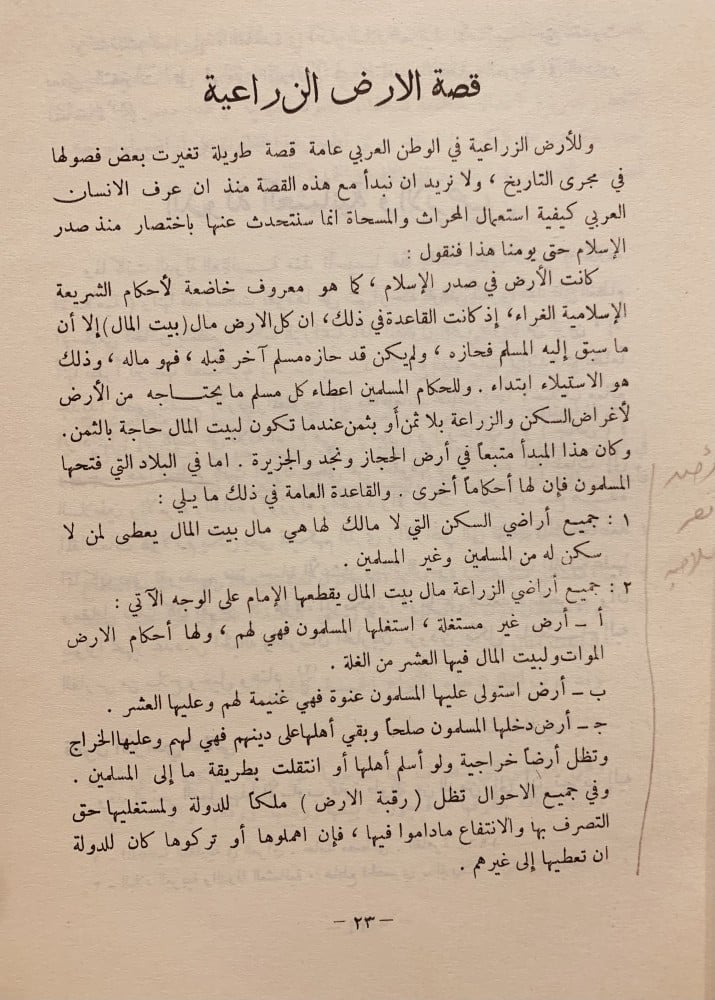 قصة الارض الزراعية
وللأرض الزراعية في الوطن العربي عامة قصة طويلة تغيرت بعض فصولها
في مجرى التاريخ ، ولا نريد ان نبدأ مع هذه القصة منذ ان عرف الانسان
العربي كيفية استعمال المحراث والمسحاة انما سنتحدث عنها باختصار منذ صدر
الإسلام حتى يومنا هذا فنقول :
كانت الأرض في صدر الإسلام ، كما هو معروف خاضعة لأحكام الشريعة
الإسلامية الغراء، إذ كانت القاعدة في ذلك، ان كل الارض مال (بيت المال) إلا أن
ما سبق إليه المسلم فحازه ، ولم يكن قد حازه مسلم آخر قبله ، فهو ماله ، وذلك
هو الاستيلاء ابتداء . وللحكام المسلمين اعطاء كل مسلم ما يحتـــاجه من الأرض
لأغراض السكن والزراعة بلا ثمن أو بثمن عندما تكون لبيت المال حاجة بالثمن.
وكان هذا المبدأ متبعاً في أرض الحجاز ونجد والجزيرة . اما في البلاد التي فتحها
المسلمون فإن لها أحكاماً أخرى . والقاعدة العامة في ذلك ما يلي :
١ : جميع أراضي السكن التي لا مالك لها هي مال بيت المال يعطى لمن لا
سكن له من المسلمين وغير المسلمين .
٢ : جميع أراضي الزراعة مال بيت المال يقطعها الإمام على الوجه الآتي :
أ ــ أرض غير مستغلة ، استغلها المسلمون فهي لهم ، ولها أحكام الارض
الموات ولبيت المال فيها العشر من الغلة .
ب ــ أرض استولى عليها المسلمون عنوة فهي غنيمة لهم وعليها العشر .
جـ ــ أرض دخلها المسلمون صلحاً وبقي أهلها على دينهم فهي لهم وعليها الخراج
وتظل أرضاً خراجية ولو أسلم أهلها أو انتقلت بطريقة ما إلى المسلمين .
وفي جميع الاحوال تظل ( رقبة الارض ) ملكاً للدولة ولمستغليها حق
التصرف بها والانتفاع ماداموا فيها ، فإن اهملوها أو تركوها كان للدولة
ان تعطيها إلى غيرهم .
– ٢٣ –